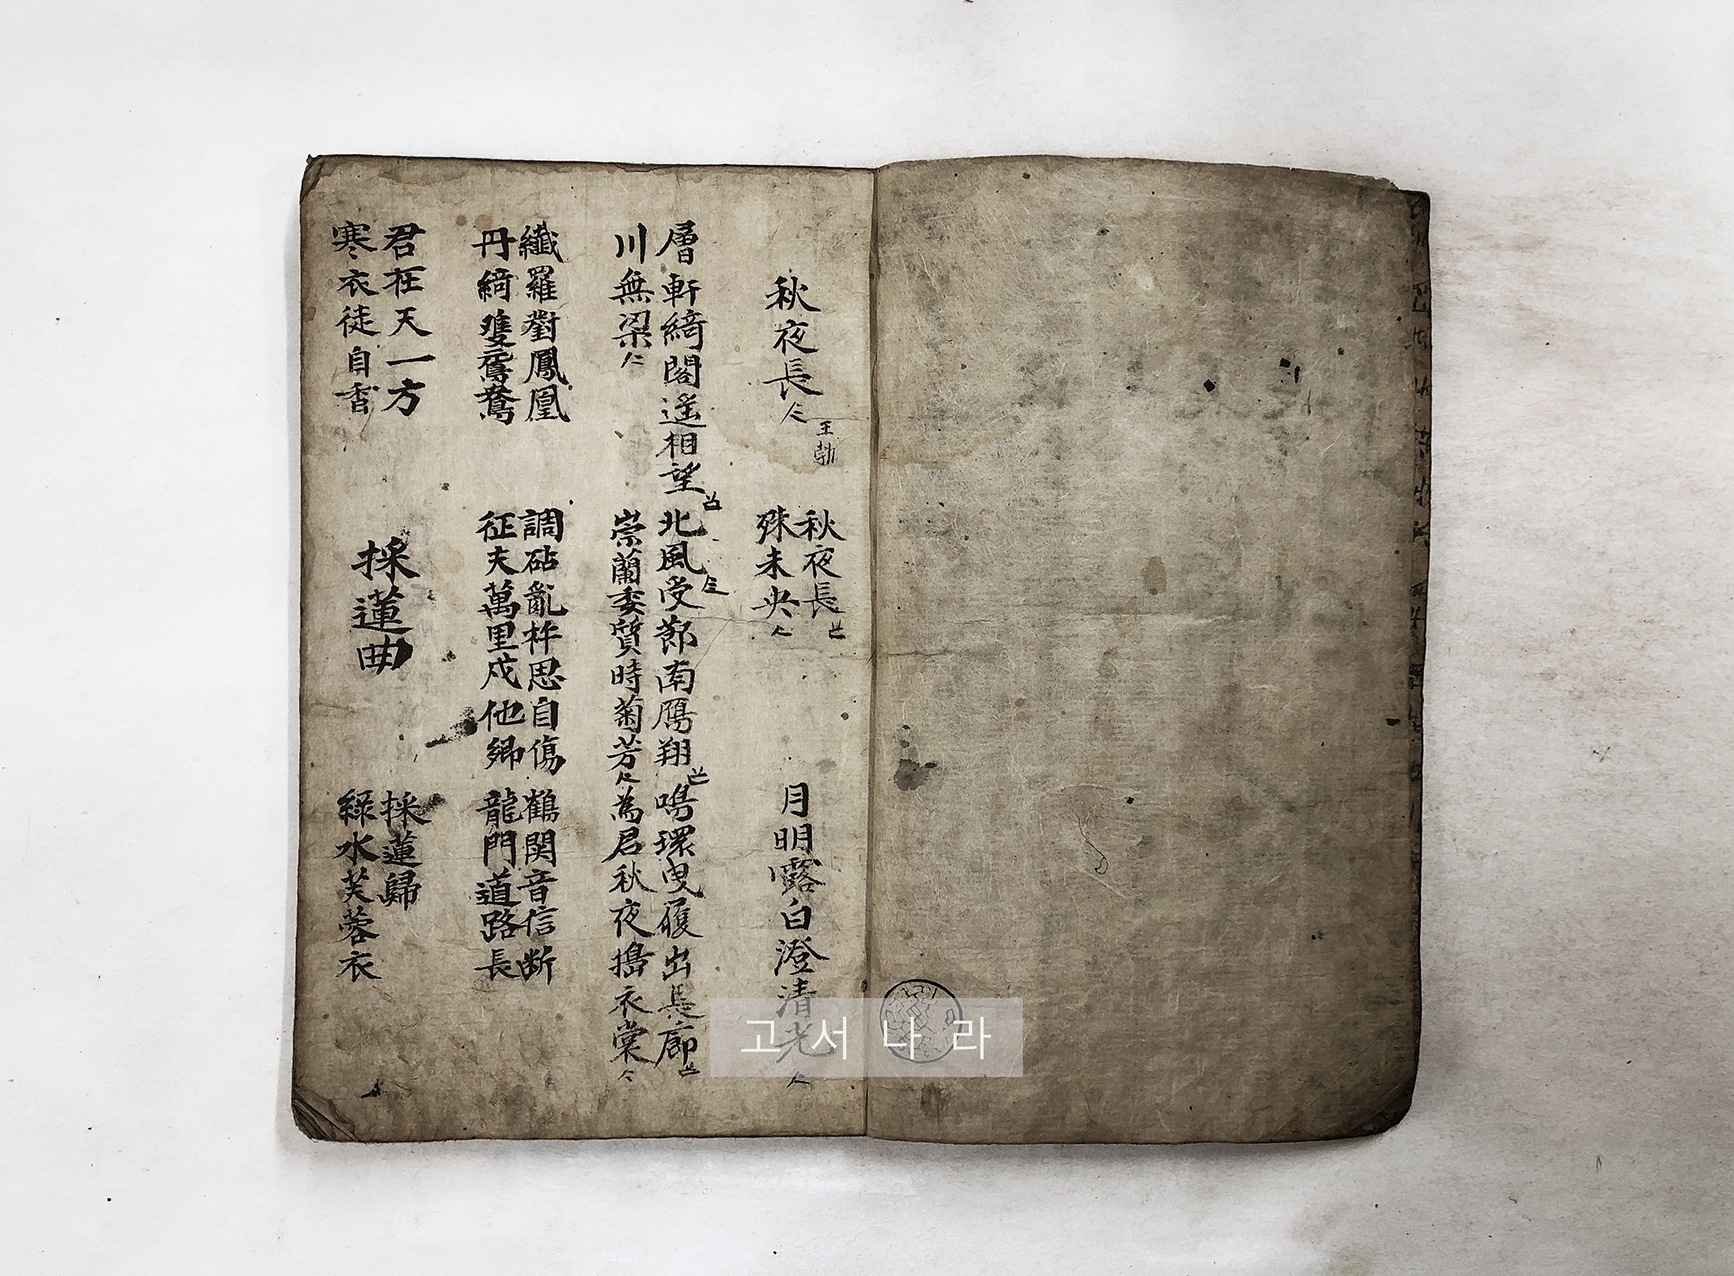 秋夜長
王勃
秋夜長
殊未央
月明露白澄清光
層軒綺閣遙相望
川無梁
北風受節南鴈翔
崇蘭委質時菊芳
鳴環曳履出長廊
為君秋夜擣衣裳
纖羅對鳳凰
丹綺雙鴛鴦
調砧亂杵思自傷
征夫萬里戍他鄕
鶴関音信断
龍門道路長
君在天一方
寒衣徒自香
採蓮曲
採蓮歸
綠水芙蓉衣
고서나라